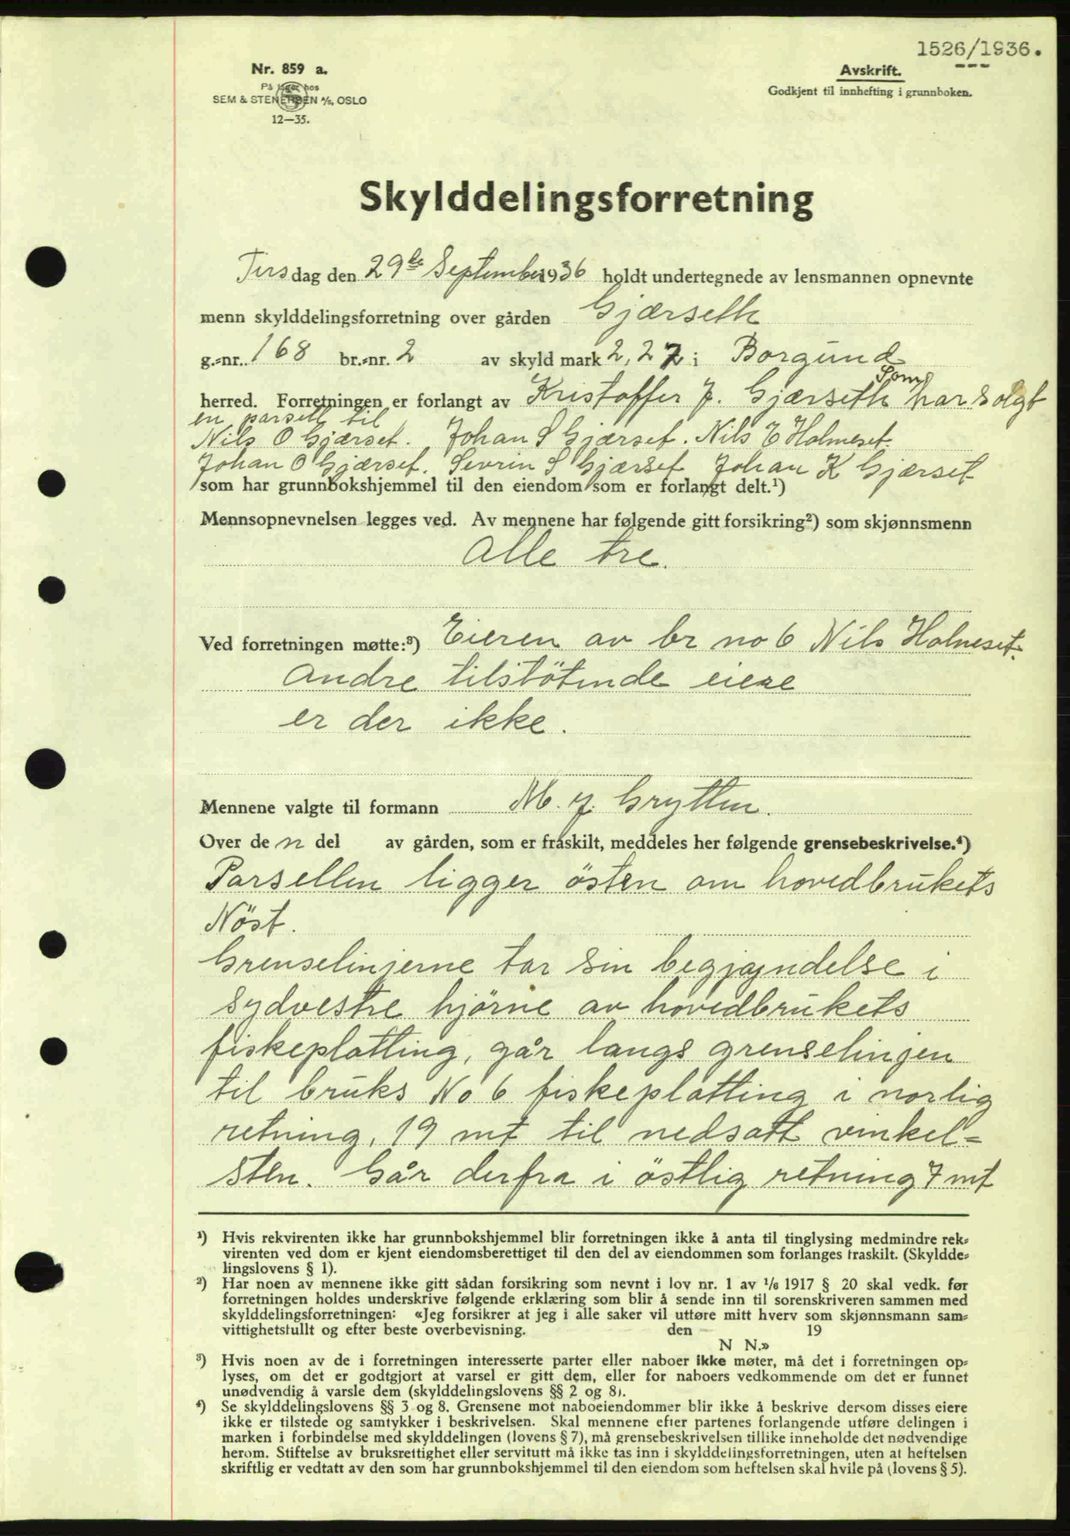 1526/1936.
Nr. 859 a.
På lager hos
SEM & STENERSEN A/S, OSLO
12—35.
Avskrift.
Godkjent til innhefting i grunnboken.
Skylddelingsforretning
Tirsdag den 29de September 1936 holdt undertegnede av lensmannen opnevnte
menn skylddelingsforretning over gården Gjærseth
g.-nr. 168 br.-nr. 2 av skyld mark 2,27 i Borgund
herred. Forretningen er forlangt av Kristoffer J. Gjærseth som har solgt
en parsell til
Nils O Gjærset. Johan S Gjærset. Nils E Holmeset.
Johan O Gjærset. Sevrin S Gjærset Johan K Gjærset
som har grunnbokshjemmel til den eiendom som er forlangt delt.¹)
Mennsopnevnelsen legges ved. Av mennene har følgende gitt forsikring²) som skjønnsmenn
Alle tre.
Ved forretningen møtte:³) Eieren av br no 6 Nils Holmeset.
Andre tilstötende eiere
er der ikke.
Mennene valgte til formann M. J. Grytten.
Over den del av gården, som er fraskilt, meddeles her følgende grensebeskrivelse.⁴)
Parsellen ligger östen om hovedbrukets
Nöst.
Grenselinjerne tar sin begjyndelse i
sydvestre hjörne av hovedbrukets
fiskeplatting, går langs grenselinjen
til bruks No 6 fiskeplatting i norlig
retning, 19 mt til nedsatt vinkel=
sten. Går derfra i östlig retning 7 mt
¹) Hvis rekvirenten ikke har grunnbokshjemmel blir forretningen ikke å anta til tinglysing medmindre rek-
virenten ved dom er kjent eiendomsberettiget til den del av eiendommen som forlanges fraskilt. (Skyldde-
lingslovens § 1).
²) Har noen av mennene ikke gitt sådan forsikring som nevnt i lov nr. 1 av 1/6 1917 § 20 skal vedk. før
forretningen holdes underskrive følgende erklæring som blir å sende inn til sorenskriveren sammen med
skylddelingsforretningen: «Jeg forsikrer at jeg i alle saker vil utføre mitt hverv som skjønnsmann sam-
vittighetsfullt og efter beste overbevisning. den 19
N N.»
³) Hvis noen av de i forretningen interesserte parter eller naboer ikke møter, må det i forretningen op-
lyses, om det er godtgjort at varsel er gitt dem, eller for naboers vedkommende om det er funnet
unødvendig å varsle dem (skylddelingslovens §§ 2 og 8).
⁴) Se skylddelingslovens §§ 3 og 8. Grensene mot naboeiendommer blir ikke å beskrive dersom disses eiere
ikke er tilstede og samtykker i beskrivelsen. Skal mennene efter partenes forlangende utføre delingen i
marken i forbindelse med skylddelingen (lovens § 7), må grensebeskrivelsen tillike inneholde det nødvendige
herom. Stiftelse av bruksrettighet eller servitutt må ikke tas inn i skylddelingsforretningen, uten at heftelsen
skriftlig er vedtatt av den som har grunnbokshjemmel til den eiendom som heftelsen skal hvile på (lovens § 5).